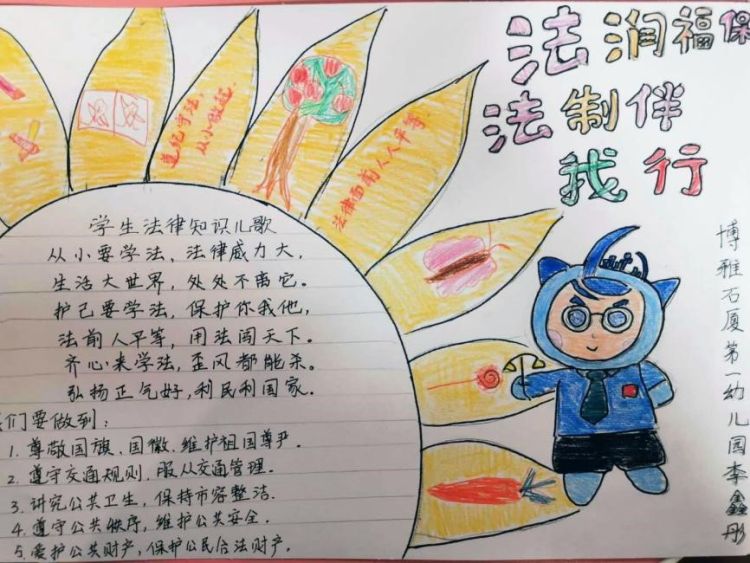 法润福保
法制伴
我行
遵纪守法,
从小做起
法律面前人人平等
学生法律知识儿歌
从小要学法,法律威力大,
生活大世界,处处不离它。
护己要学法,保护你我他,
法前人平等,用法闯天下。
齐心来学法,歪风都能杀。
弘扬正气好,利民利国家。
们要做到:
1. 尊敬国旗、国徽、维护祖国尊严。
2. 遵守交通规则,服从交通管理。
3. 讲究公共卫生,保持市容整洁.
4. 遵守公共秩序,维护公共安全.
5. 爱护公共财产,保护公民合法财产.
博雅石厦第一幼儿园李鑫彤